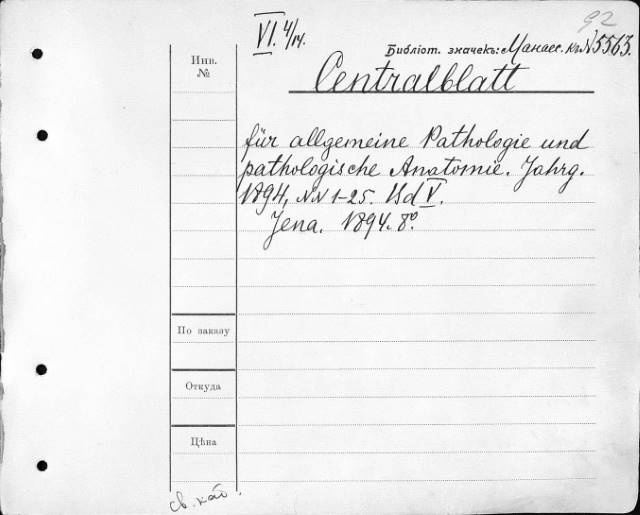 92
VI. 4/14.
Библіот. значекъ: Манасс. къ N 5563.
Инв. №
Centralblatt
für allgemeine Pathologie und
pathologische Anatomie. Jahrg.
1894, NN 1-25. Bd V.
Jena. 1894. 8º.
По заказу
Откуда
Цѣна
св. каб.